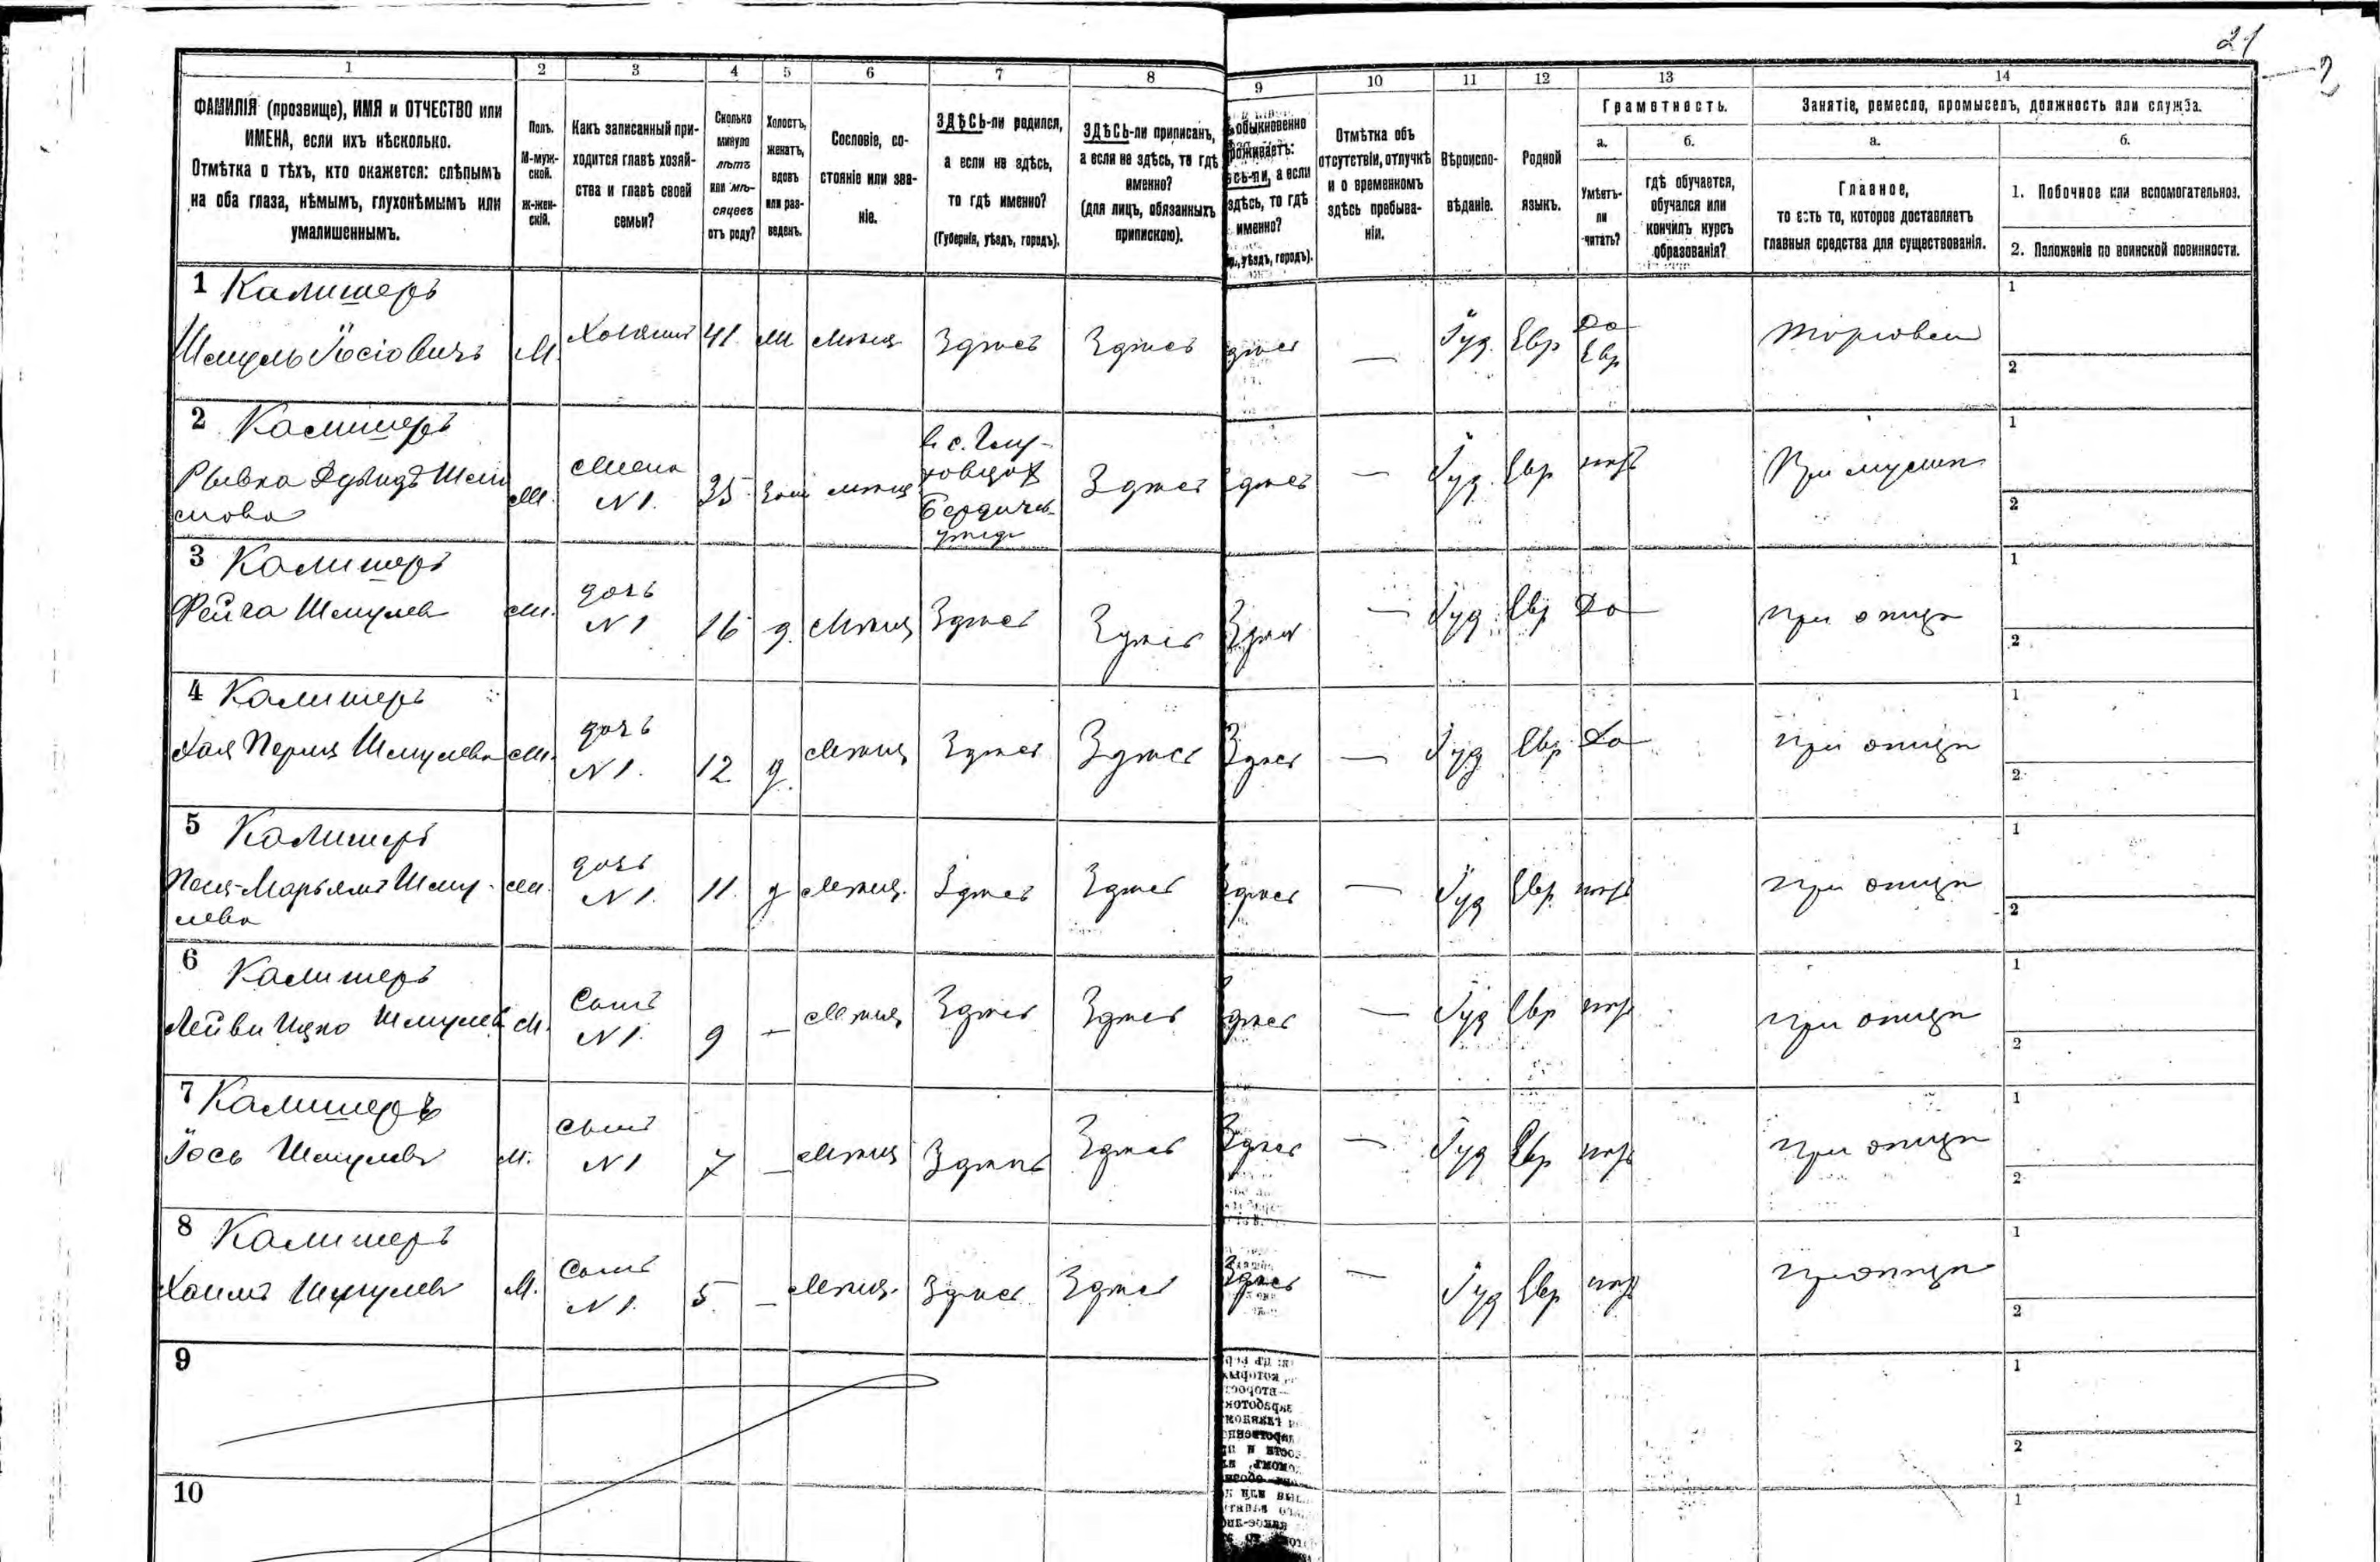 21
2
1 2 3 4 5 6 7 8 9 10 11 12 13 14
ФАМИЛІЯ (прозвище), ИМЯ и ОТЧЕСТВО или
ИМЕНА, если ихъ нѣсколько.
Отмѣтка о тѣхъ, кто окажется: слѣпымъ
на оба глаза, нѣмымъ, глухонѣмымъ или
умалишеннымъ.
Полъ.
М-муж-
ской.
ж-жен-
скій.
Какъ записанный при-
ходится главѣ хозяй-
ства и главѣ своей
семьи?
Сколько
минуло
лѣтъ
или мѣ-
сяцевъ
отъ роду?
Холостъ,
женатъ,
вдовъ
или раз-
веденъ.
Сословіе, со-
стояніе или зва-
ніе.
ЗДѢСЬ-ли родился,
а если не здѣсь,
то гдѣ именно?
(Губернія, уѣздъ, городъ).
ЗДѢСЬ-ли приписанъ,
а если не здѣсь, то гдѣ
именно?
(для лицъ, обязанныхъ
припискою).
обыкновенно
роживаетъ:
сь-ли, а если
здѣсь, то гдѣ
именно?
уѣздъ, городъ).
Отмѣтка объ
отсутствіи, отлучкѣ
и о временномъ
здѣсь пребыва-
ніи.
Вѣроиспо-
вѣданіе.
Родной
языкъ.
Грамотность.
а.
Умѣетъ-
ли
читать?
б.
гдѣ обучается,
обучался или
кончилъ курсъ
образованія?
Занятіе, ремесло, промыселъ, должность или служба.
а.
Главное,
то есть то, которое доставляетъ
главныя средства для существованія.
б.
1. Побочное или вспомогательное.
2. Положеніе по воинской повинности.
1 Калишеръ
Шмуль Іосіовичъ М. Хозяинъ 41 ж мѣщ Здѣсь Здѣсь здѣсь — Іуд. Евр Да Евр Торговец
1
2
2 Калишеръ
Рывка М. жена N 1. 35 зам мѣщ Бердичев. уѣзда Здѣсь здѣсь — Іуд. Евр нѣтъ При мужѣ
1
2
3 Калишеръ
Фейга Шмулев М. дочь N 1 16 д. мѣщ Здѣсь Здѣсь Здѣсь — Іуд Евр Да при отцѣ
1
2
4 Калишеръ
Хая Перля Шмулева М. дочь N 1. 12 д. мѣщ Здѣсь Здѣсь Здѣсь — Іуд Евр Да при отцѣ
1
2
5 Калишеръ
Песя-Марьямъ Шму-
лева М. дочь N 1. 11 д мѣщ. Здѣсь Здѣсь здѣсь — Іуд Евр нѣтъ при отцѣ
1
2
6 Калишеръ
Лейви Ицко Шмулев М. Сынъ N 1. 9 — мѣщ Здѣсь Здѣсь здѣсь — Іуд Евр нѣтъ при отцѣ
1
2
7 Калишеръ
Іось Шмулевъ М. Сынъ N 1 7 — мѣщ Здѣсь Здѣсь Здѣсь — Іуд Евр нѣтъ при отцѣ
1
2
8 Калишеръ
Хаимъ Шмулев М. Сынъ N 1. 5 — мѣщ. Здѣсь Здѣсь Здѣсь — Іуд Евр нѣтъ при отцѣ
1
2
9
1
2
10
1